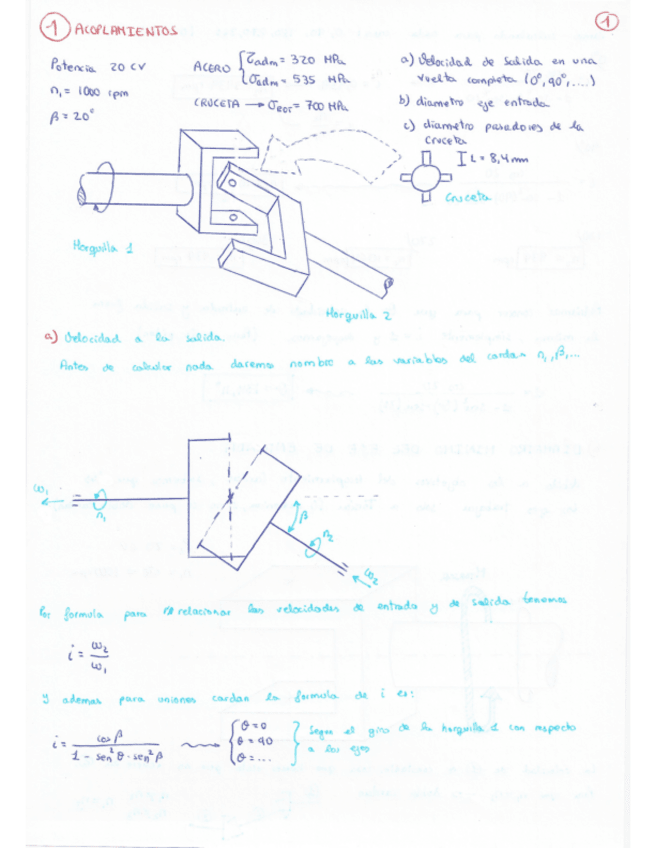 1 ACOPLAMIENTOS
1
Potencia 20 CV
n1 = 1000 rpm
β = 20°
ACERO { τadm = 320 MPa
σadm = 535 MPa
CRUCETA → σeor = 700 MPa
a) Velocidad de salida en una
vuelta completa (0°, 90°, ....)
b) diametro eje entrada
c) diametro pasadores de la
cruceta
L = 8,4 mm
Cruceta
Horquilla 1
Horquilla 2
a) Velocidad a la salida.
Antes de calcular nada daremos nombre a las variables del cardan n1, β, ...
ω1
n1
β
n2
ω2
Por formula para relacionar las velocidades de entrada y de salida tenemos
i = ω2 / ω1
Y ademas para uniones cardan la formula de i es:
i = cos β / 1 - sen² θ · sen² β
θ = 0
θ = 90
θ = ...
Segun el giro de la horquilla 1 con respecto
a los ejes